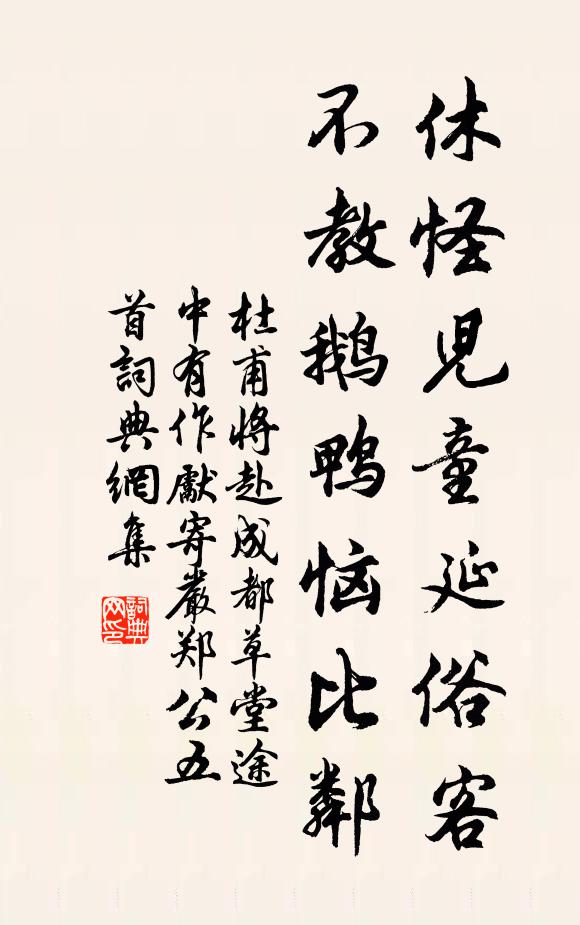 休怪児童延俗客
不教鹅鸭恼比鄰
杜甫將赴成都草堂途
中有作獻寄嚴郑公五
首詞典網集
詞典
网印